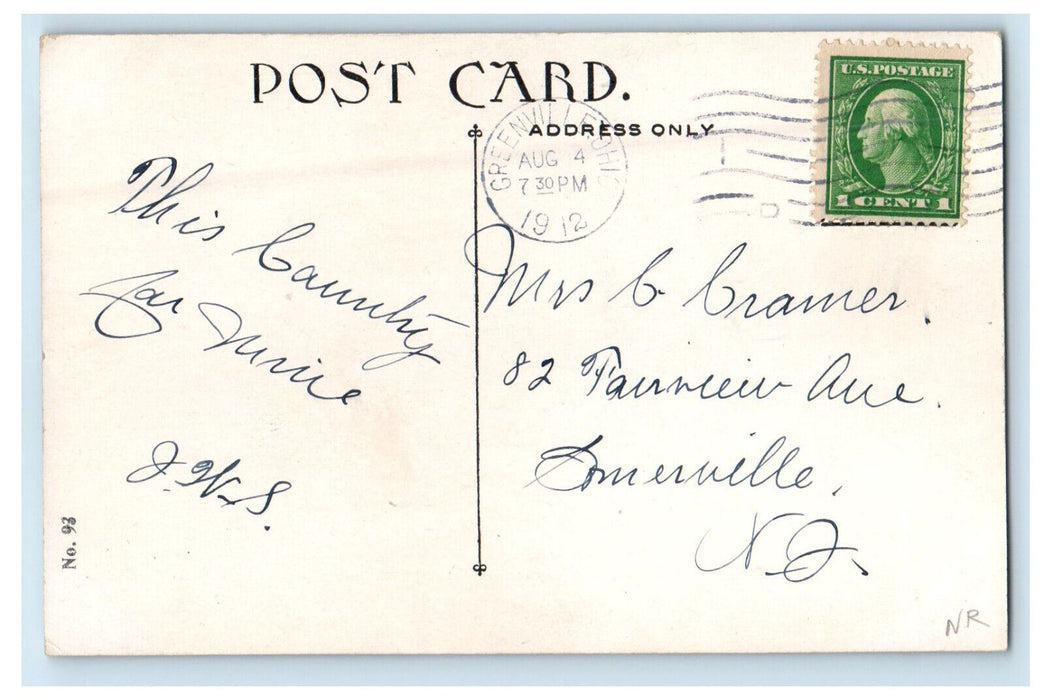 POST CARD.
ADDRESS ONLY
U.S. POSTAGE
1 CENT 1
GREENVILLE, OHIO
AUG 4
7 30 PM
1912
This Country
for mine
J. W. S.
Mrs C Cramer.
82 Fairview Ave.
Somerville,
N.J.
No. 93
NR